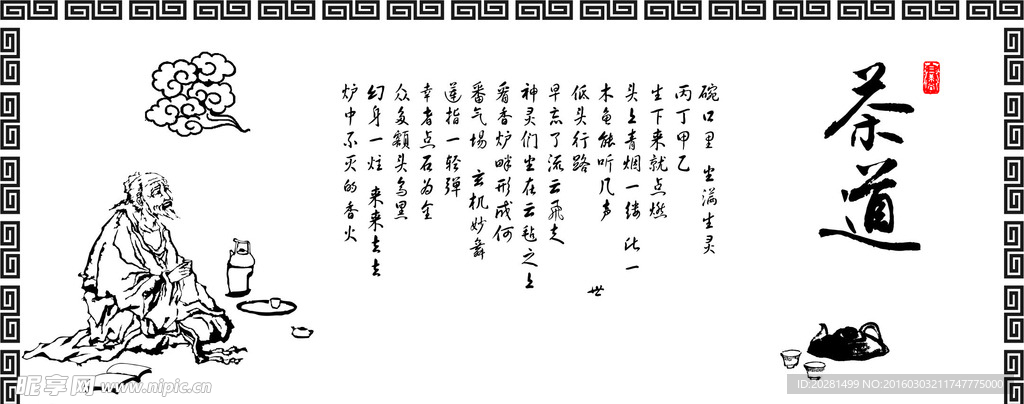 茶道
碗口里 坐满生灵
丙丁甲乙
生下来就点燃
头上青烟一缕 此一
世
木鱼能听几声
低头行路
早忘了流云飞走
神灵们坐在云毡之上
看香炉畔形成何
番气场 玄机妙舞
莲指一轻弹
幸者点石为金
众多额头乌黑
幻身一炷 来来去去
炉中不灭的香火
昵享网 www.nipic.cn
ID:20281499 NO:20160303211747775000